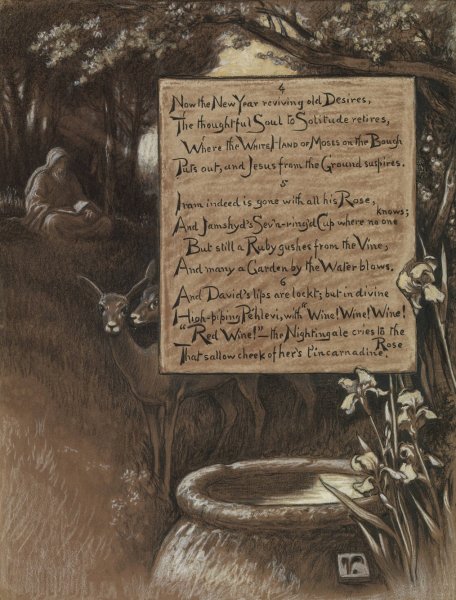 4
Now the New Year reviving old Desires,
The thoughtful Soul to Solitude retires,
Where the White Hand of Moses on the Bough
Puts out, and Jesus from the Ground suspires.
5
Iram indeed is gone with all his Rose,
And Jamshyd's Sev'n-ring'd Cup where no one knows;
But still a Ruby gushes from the Vine,
And many a Garden by the Water blows.
6
And David's lips are lockt; but in divine
High-piping Pehlevi, with "Wine! Wine! Wine!
"Red Wine!"—the Nightingale cries to the Rose
That sallow cheek of her's t'incarnadine.